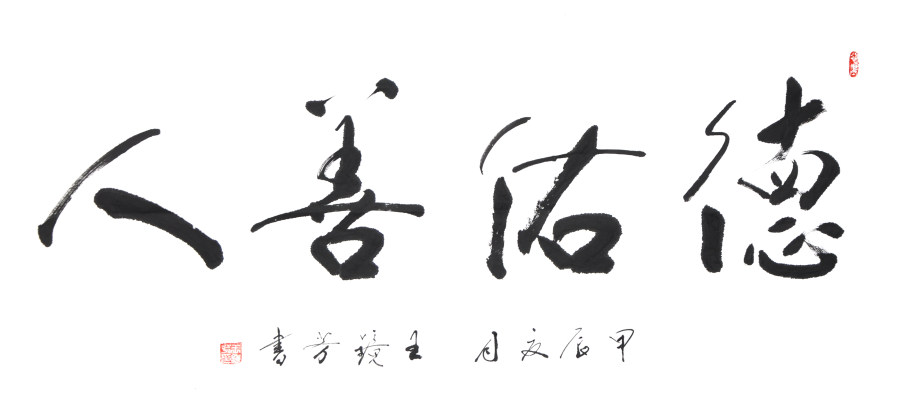 德佑善人
甲辰夏月 王镜芳書